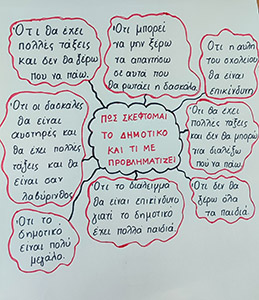 Ότι θα έχει
πολλές τάξεις
και δεν θα ξέρω
που να πάω.
Ότι μπορεί
να μην ξέρω
να απαντήσω
σε αυτά που
θα ρωτάει η δασκάλα.
Ότι η αυλή
του σχολείου
θα είναι
επικίνδυνη
Ότι οι δασκάλες
θα είναι
αυστηρές και
θα έχει πολλές
τάξεις και θα
είναι σαν
λαβύρινθος
ΠΩΣ ΣΚΕΦΤΟΜΑΙ
ΤΟ ΔΗΜΟΤΙΚΟ
ΚΑΙ ΤΙ ΜΕ
ΠΡΟΒΛΗΜΑΤΙΖΕΙ
Ότι θα έχει
πολλές τάξεις
και δεν θα μπορώ
να διαλέξω
που να πάω.
Ότι το
δημοτικό
είναι πολύ
μεγάλο.
Ότι το διάλειμμα
θα είναι επικίνδυνο
γιατί το δημοτικό
έχει πολλά παιδιά.
Ότι δεν θα
ξέρω όλα
τα παιδιά